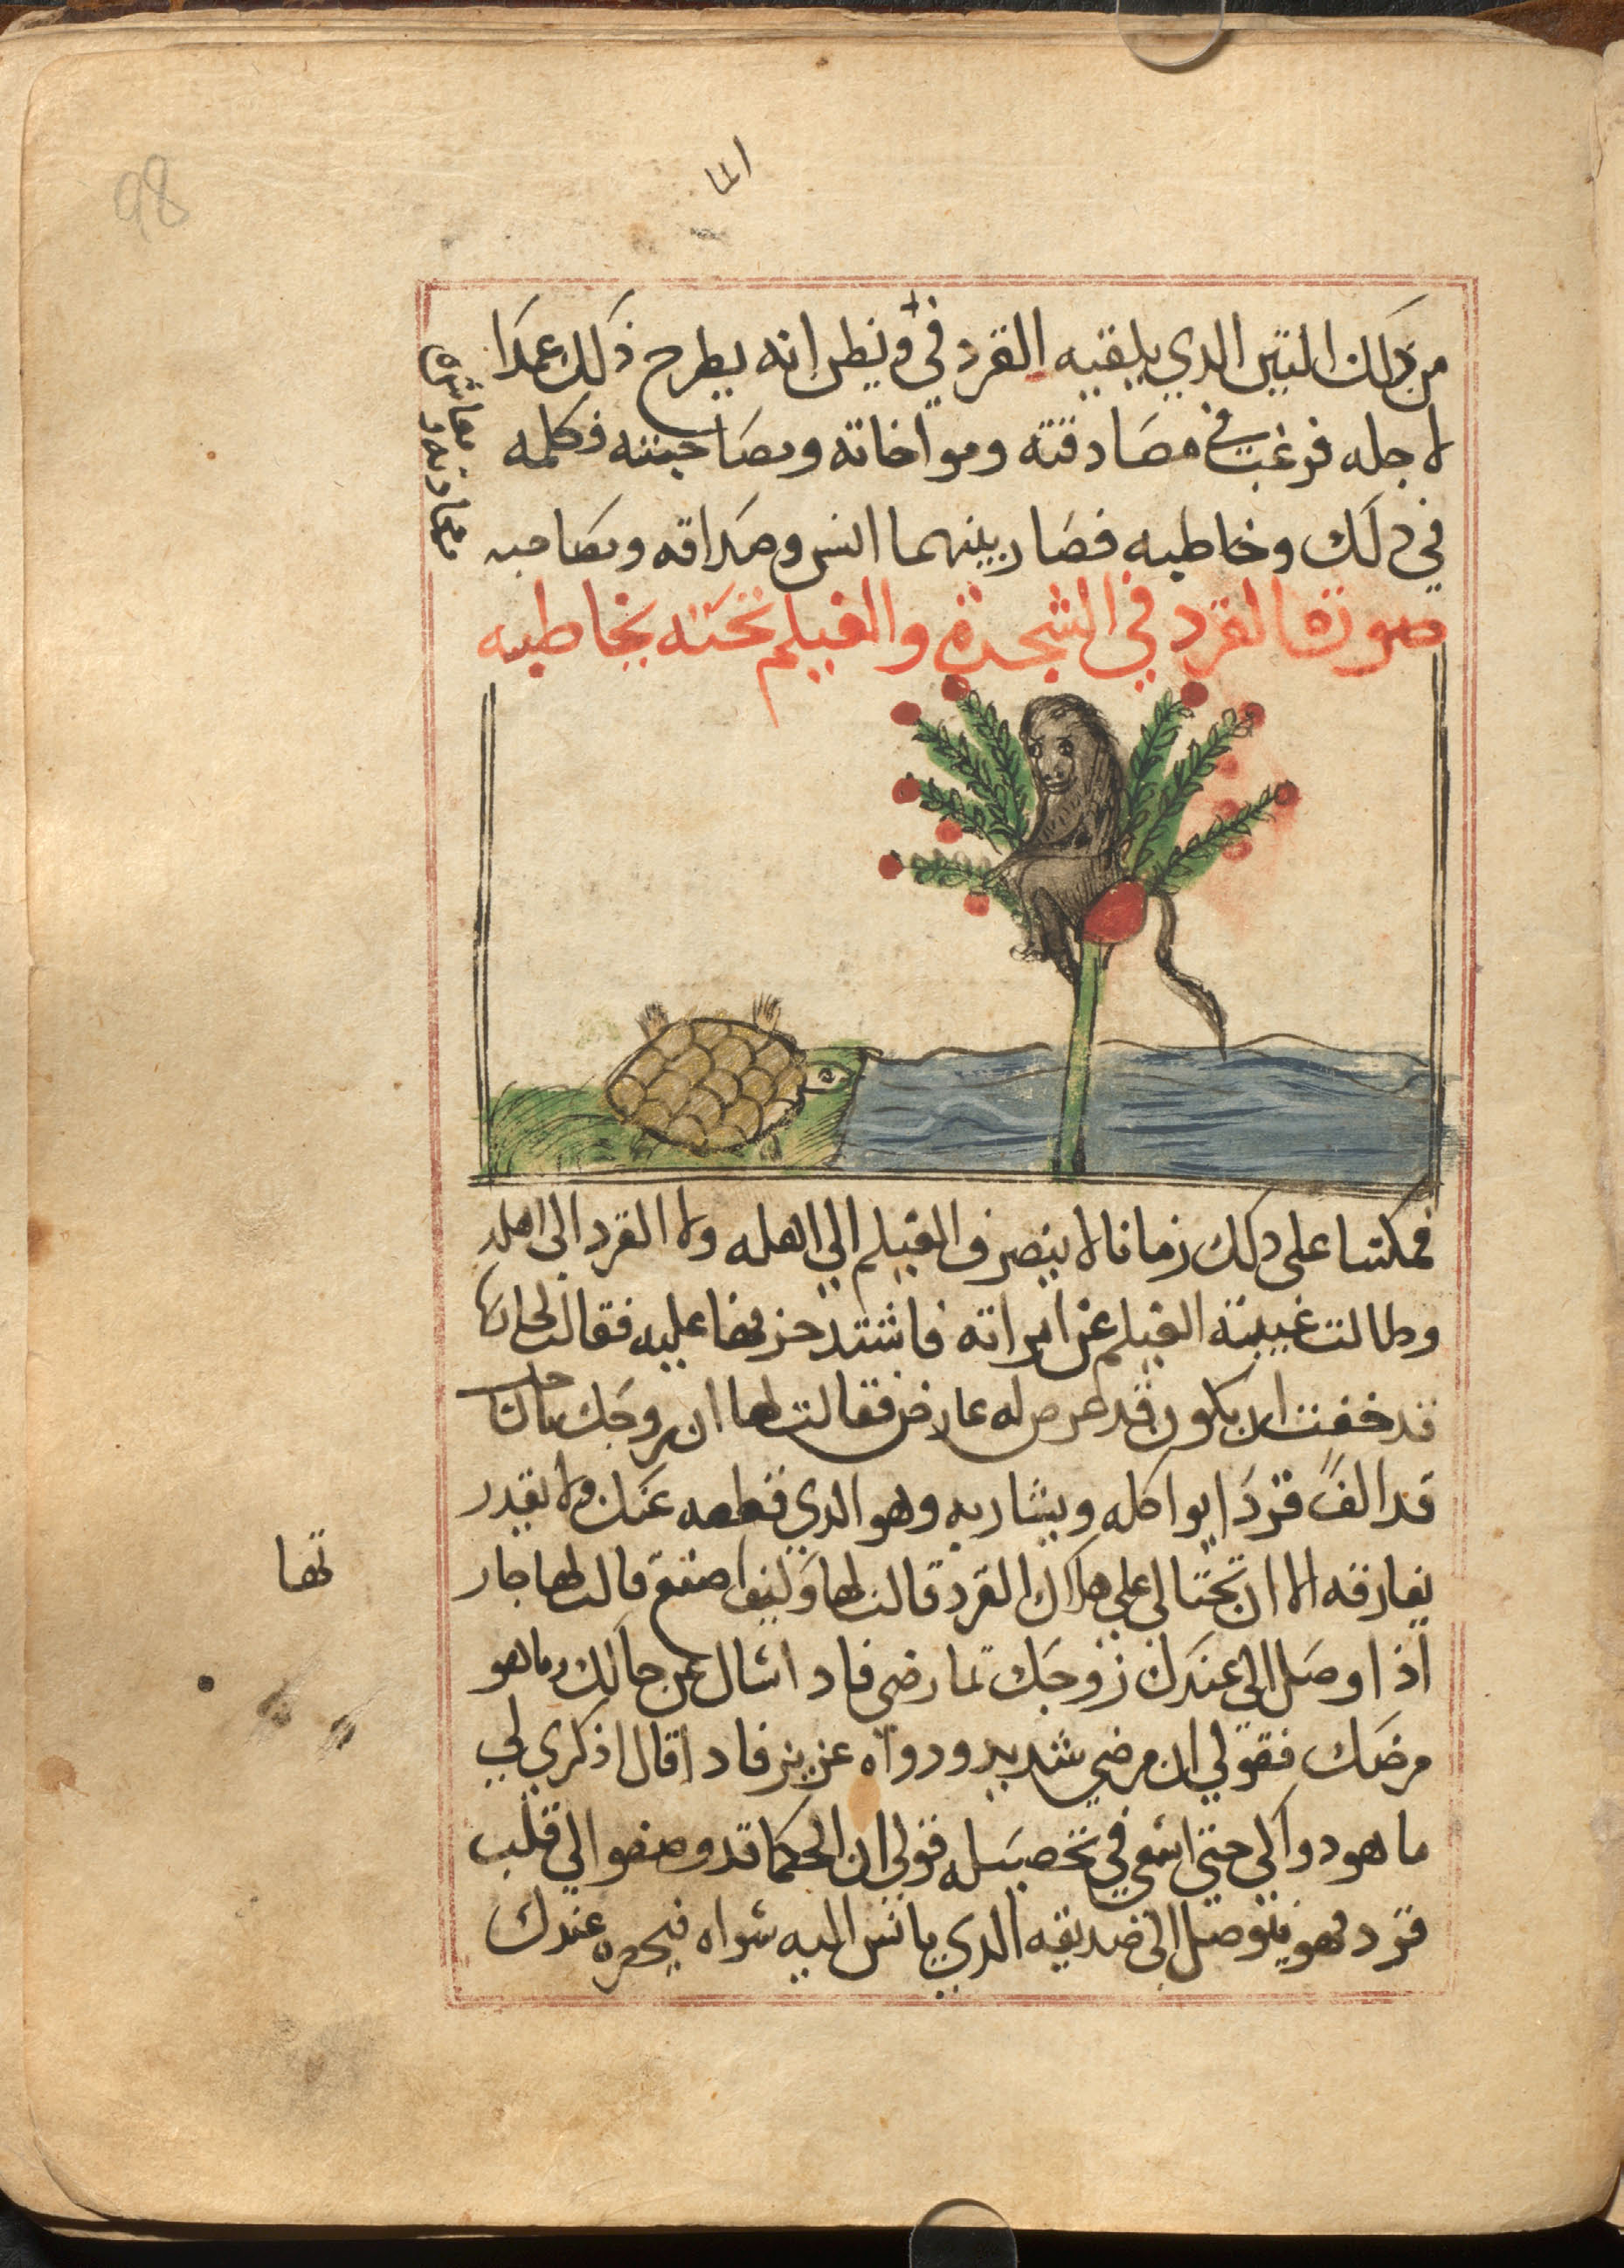 98
من ذلك التين الدي يلقيه القرد في ويظن انه يطرح ذلك عمدا
لاجله فرغب في مصادقته ومواخاته ومصاحبته فكلمه
في دلك وخاطبه فصار بينهما انس وصداقه ومصاحبه
صورة القرد في الشجرة والغيلم تحته يخاطبه
فمكثا على دلك زمانا لا ينصرف الغيلم الي اهله ولا القرد الى اهله
وطالت غيبة الغيلم عن امراته فاشتد حزنها عليه فقالت لجارتها
قد خفت ان يكون قد عرض له عارض فقالت لها ان زوجك بالساحل
قد الف قردا يواكله ويشاربه وهو الدي قطعه عنك ولا يقدر
يفارقه الا ان تحتالي على هلاك القرد قالت لها وكيف اصنع قالت لها جار
تها
اذا وصل الى عندك زوجك تمارضي فادا سال عن حالك وما هو
مرضك فقولي ان مرضي شديد ودواه عزيز فادا قال اذكري لي
ما هو دواكي حتى اسعى في تحصيله قولي ان الحكما قد وصفوا لي قلب
قرد فهو يتوصل الى صديقه الدي يانس اليه شراه فيحضره عندك